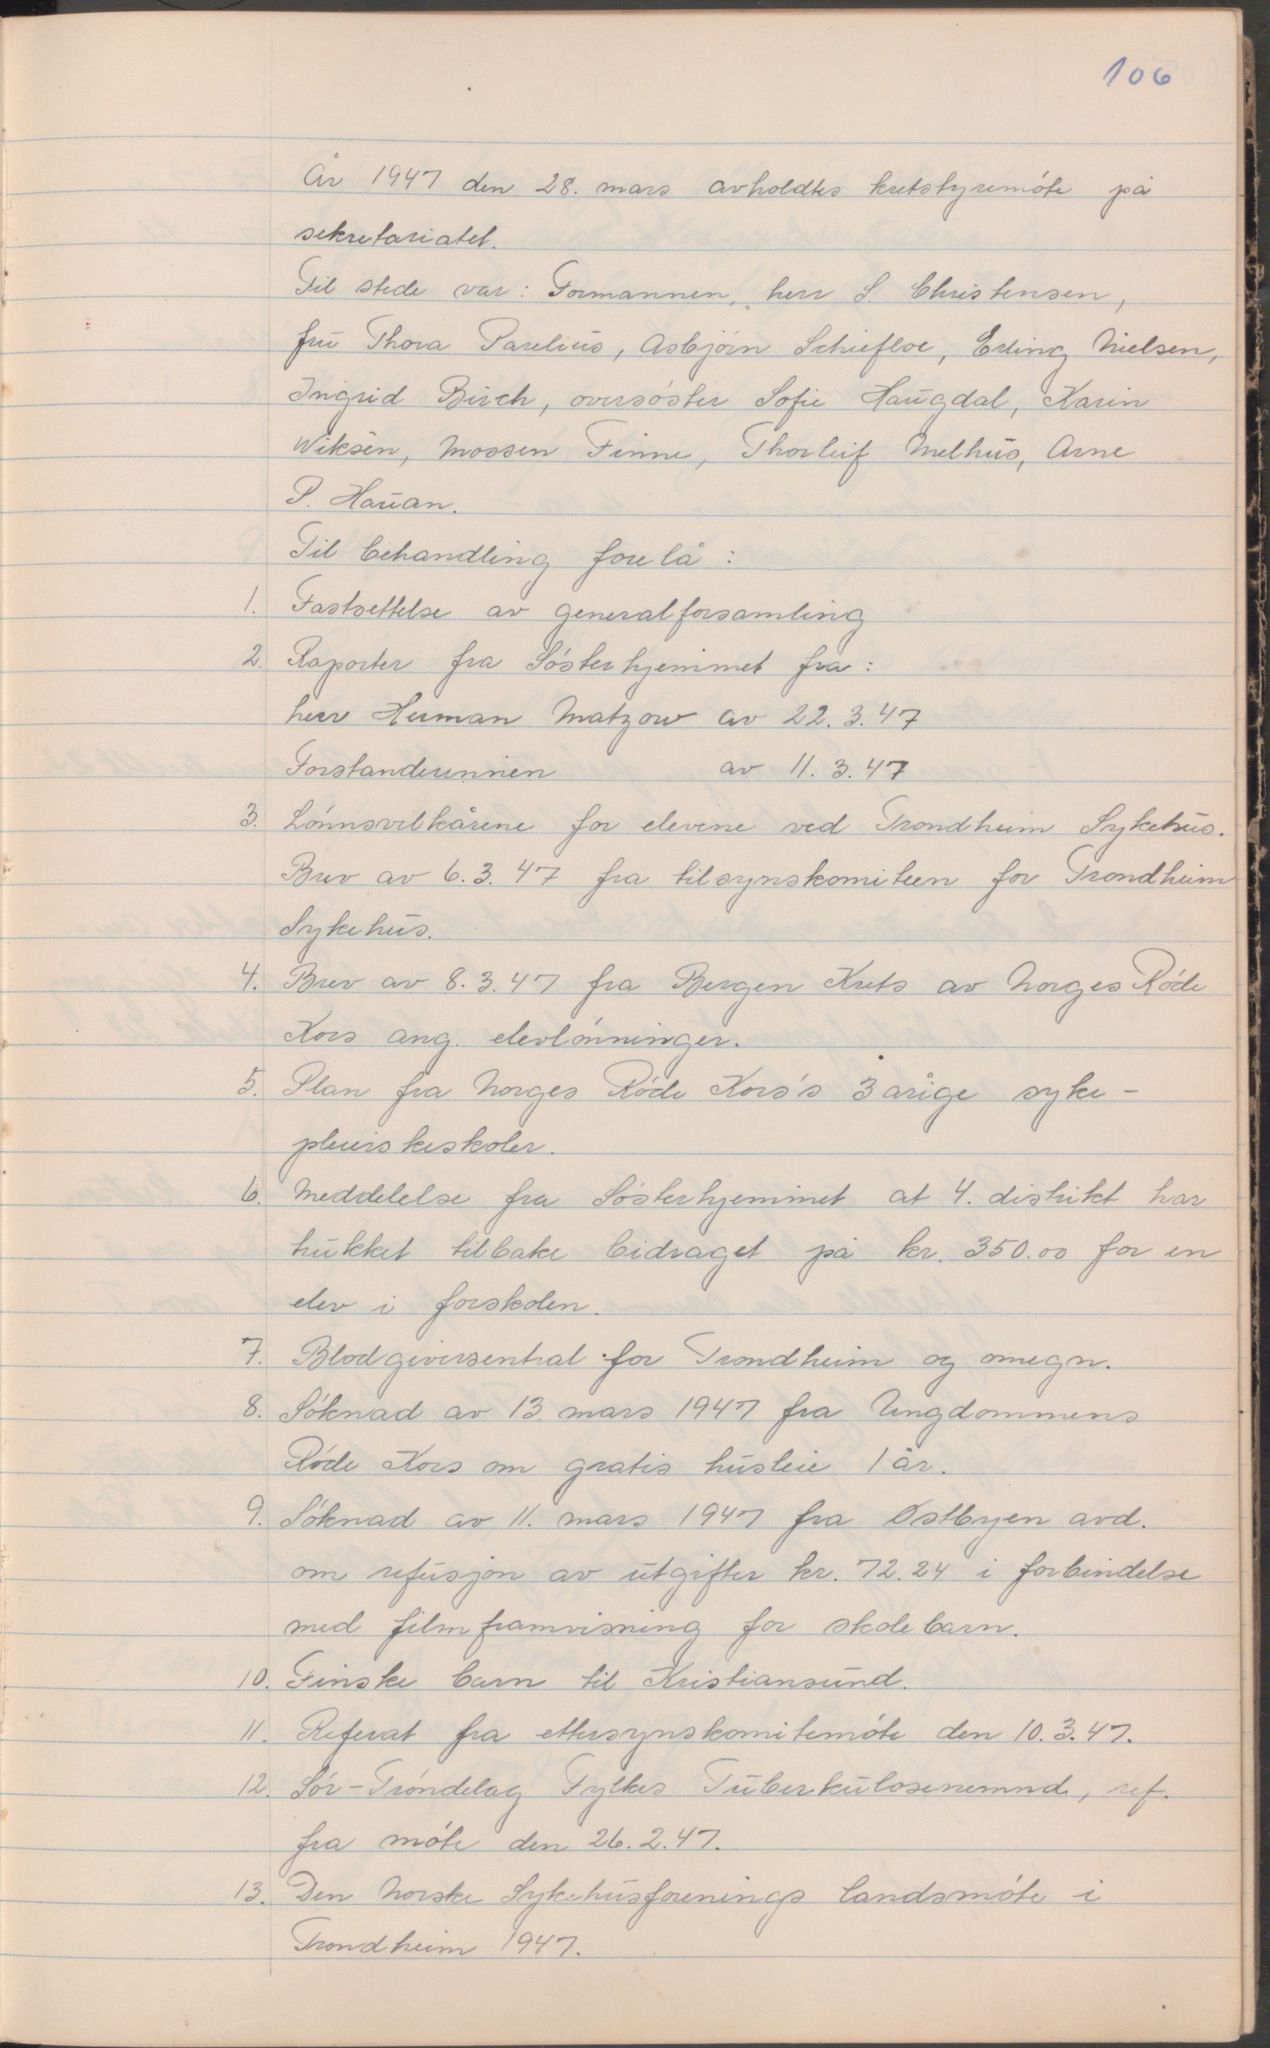 106
År 1947 den 28. mars avholdtes kretsstyremöte på
sekretariatet.
Til stede var: Formannen, herr S Christensen,
fru Thora Parelius, Asbjörn Schiefloe, Erling Nielsen,
Ingrid Birch, oversöster Sofie Haugdal, Karin
Wiksèn, Mossen Finne, Thorleif Melhus, Arne
P. Hauan.
Til behandling forelå:
1. Fastsettelse av generalforsamling
2. Raporter fra Sösterhjemmet fra:
herr Herman Matzow av 22.3.47
Forstanderinnen av 11.3.47
3. Lönnsvilkårene for elevene ved Trondheim Sykehus.
Brev av 6.3.47 fra tilsynskomiteen for Trondheim
Sykehus.
4. Brev av 8.3.47 fra Bergen Krets av Norges Röde
Kors ang. elevlönninger.
5. Plan fra Norges Röde Kors's 3 årige syke-
pleierskeskoler.
6. Meddelelse fra Sösterhjemmet at 4. distrikt har
trukket tilbake bidraget på kr. 350.00 for en
elev i forskolen.
7. Blodgiversentral for Trondheim og omegn.
8. Söknad av 13. mars 1947 fra Ungdommens
Röde Kors om gratis husleie 1 år.
9. Söknad av 11. mars 1947 fra Østbyen avd.
om refusjon av utgifter kr. 72.24 i forbindelse
med filmframvisning for skolebarn.
10. Finske barn til Kristiansund.
11. Referat fra ettersynskomitemöte den 10.3.47.
12. Sör-Tröndelag Fylkes Tuberkulosenemnd, ref.
fra möte den 26.2.47.
13. Den Norske Sykehusforenings landsmöte i
Trondheim 1947.